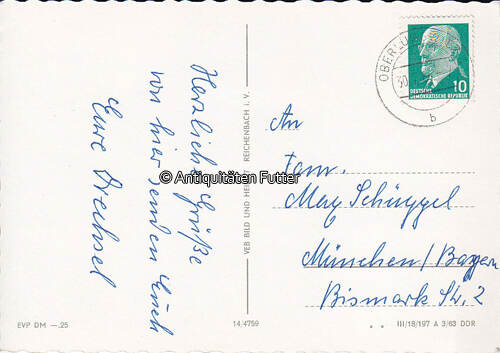 Herzliche Grüße
von hier senden Euch
Eure Drechsel
EVP DM —.25
14/4759
VEB BILD UND HEIMAT REICHENBACH i. V.
© Antiquitäten Futter
10
DEUTSCHE
DEMOKRATISCHE REPUBLIK
b
An
Fam.
Max Schüggel
München/Bayern
Bismark Str. 2
III/18/197 A 3/63 DDR